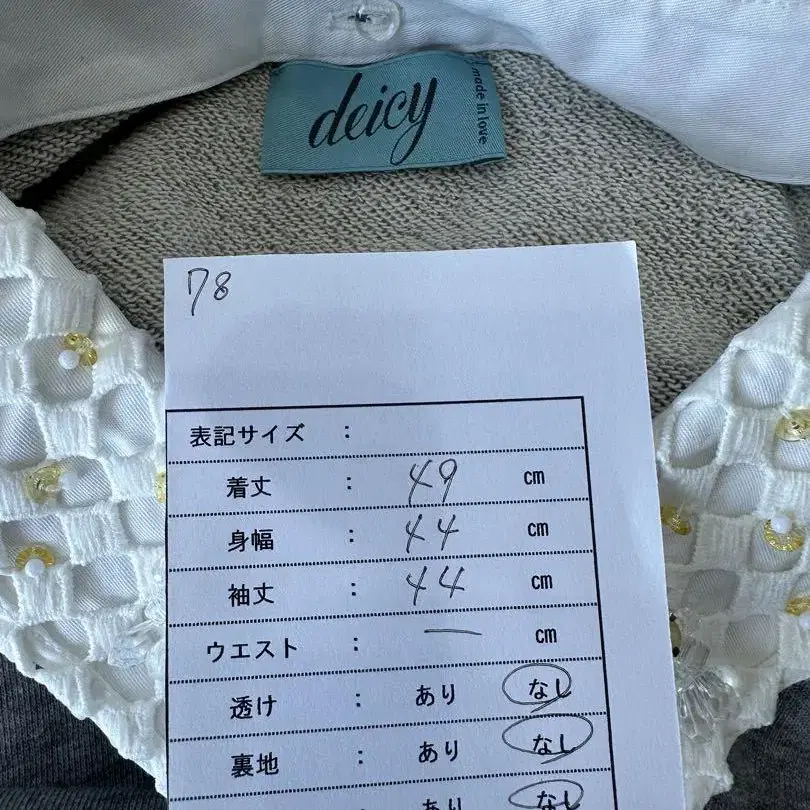 deicy
made in love
78
表記サイズ :
着丈 : 49 cm
身幅 : 44 cm
袖丈 : 44 cm
ウエスト : — cm
透け : あり なし
裏地 : あり なし
あり なし